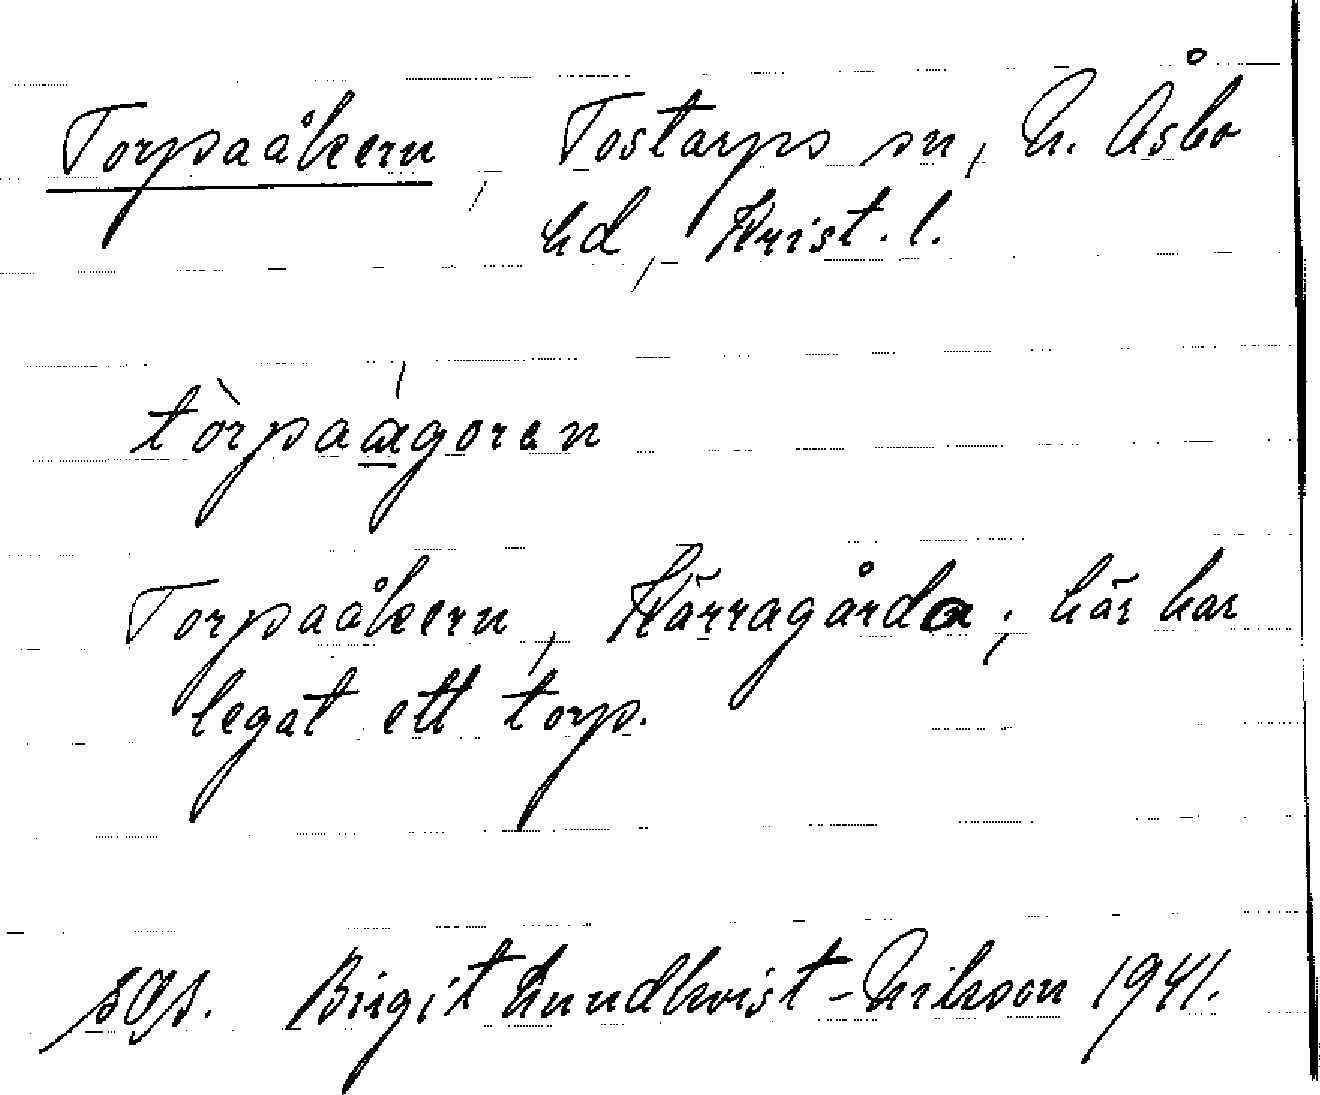 Torpaåkern, Tostarps sn, N. Åsbo
hd, Krist. l.
tòrpaágoren
Torpaåkern, Kärragårda; här har
legat ett torp.
Birgit Lundkvist-Nilsson 1941.